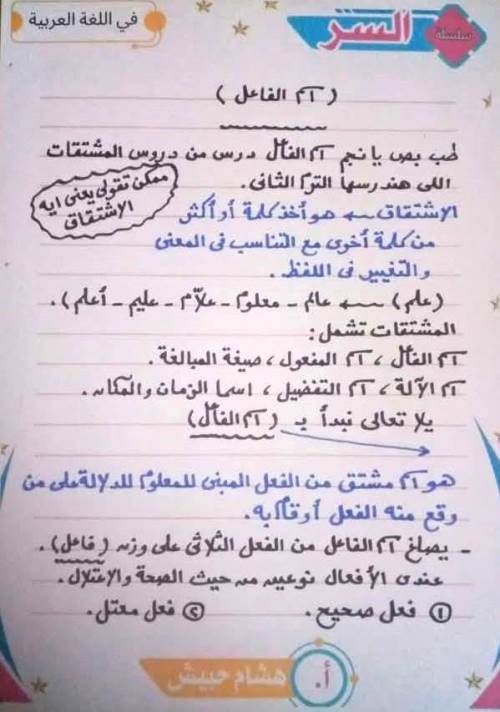 سلسلة السر
في اللغة العربية
( اسم الفاعل )
طب بص يا نجم اسم الفاعل درس من دروس المشتقات
اللى هندرسها الترم الثانى.
ممكن تقولى يعنى ايه الإشتقاق
الإشتقاق ← هو أخذ كلمة أو أكثر
من كلمة أخرى مع التناسب فى المعنى
والتغيير فى اللفظ..
(علم) ← عالم - معلوم - علّام - عليم - أعلم).
المشتقات تشمل:
اسم الفاعل ، اسم المفعول ، صيغة المبالغة.
اسم الآلة ، اسم التفضيل ، اسما الزمان والمكان.
يلا تعالى نبدأ بـ (اسم الفاعل)
هو اسم مشتق من الفعل المبنى للمعلوم للدلالة على من
وقع منه الفعل أو قام به.
- يصاغ اسم الفاعل من الفعل الثلاثى على وزن (فاعل).
عندى الأفعال نوعين من حيث الصحة والإعتلال.
① فعل صحيح. ② فعل معتل.
أ. هشام حبيش